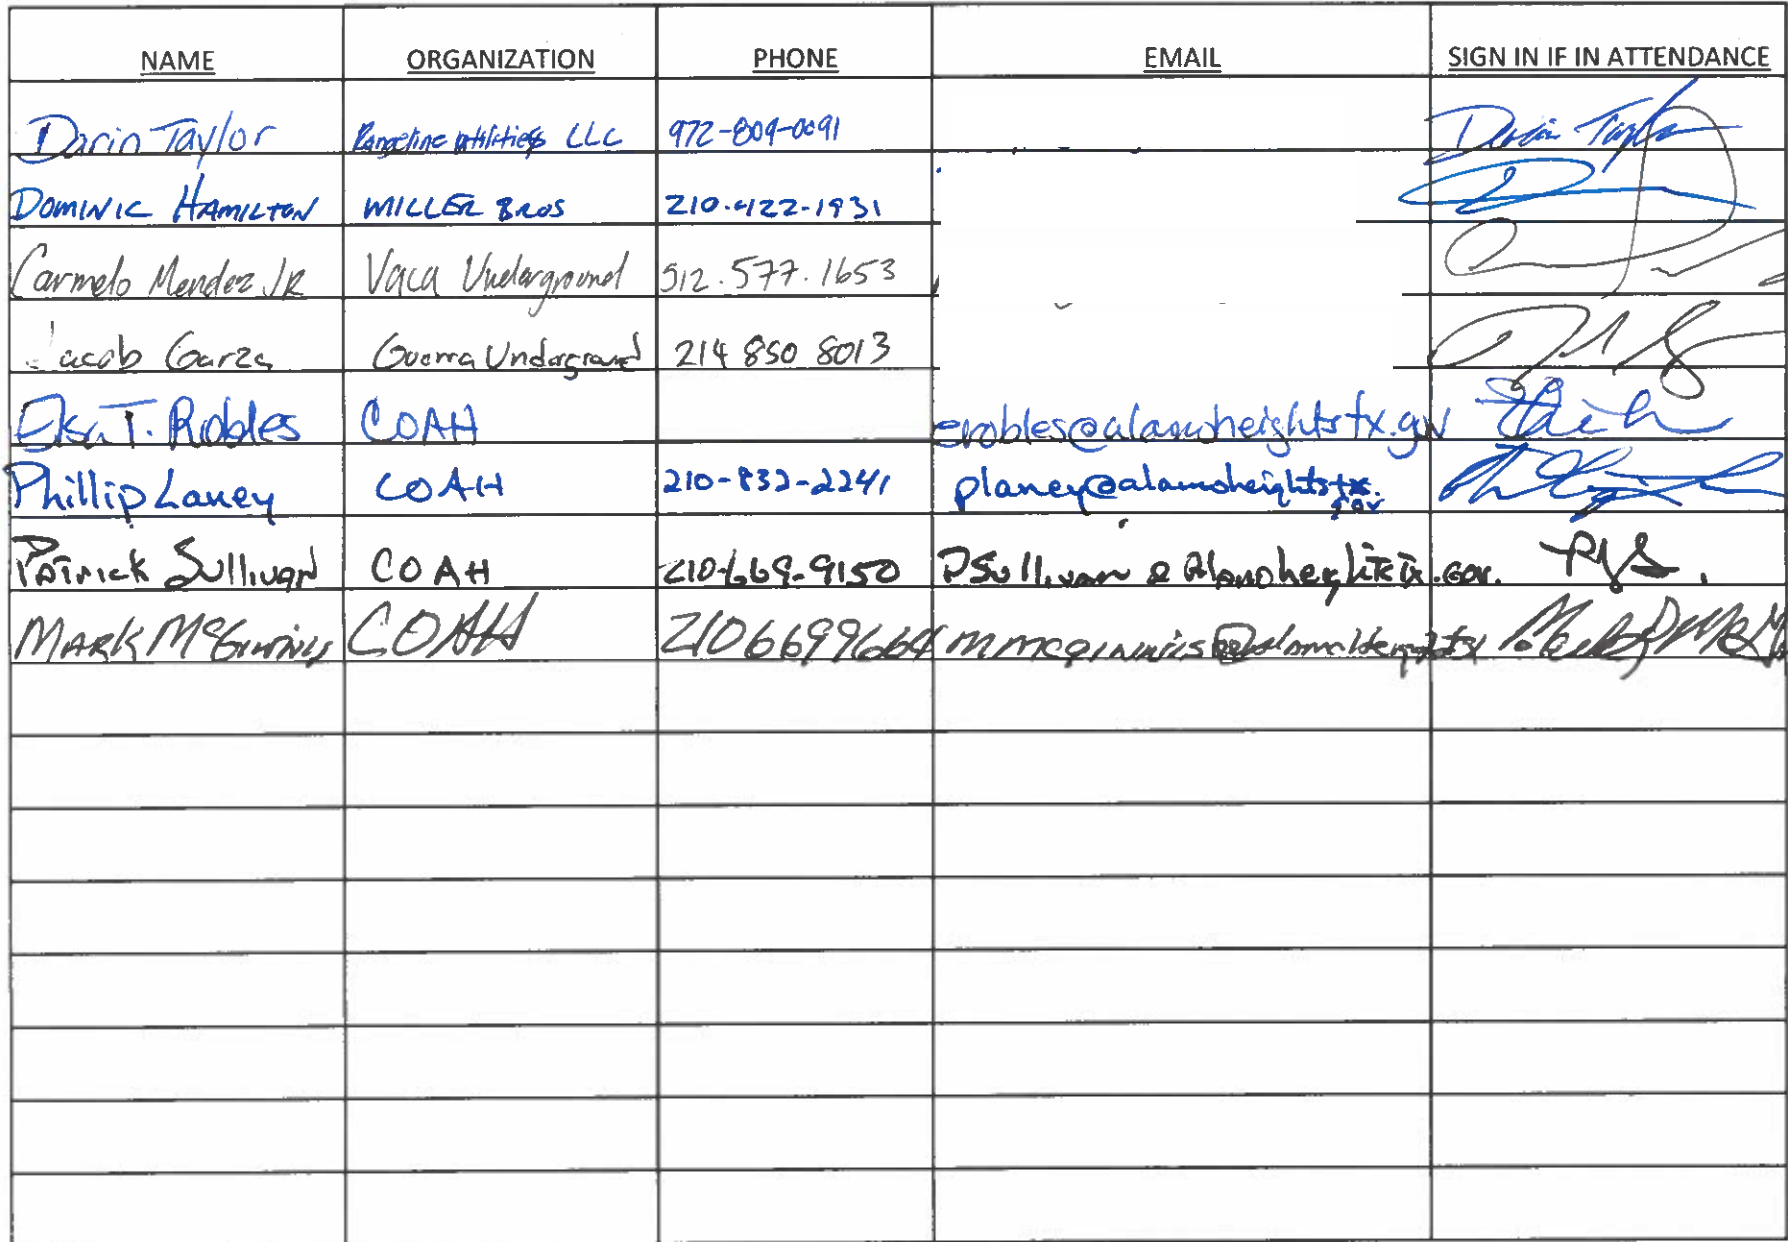 NAME ORGANIZATION PHONE EMAIL SIGN IN IF IN ATTENDANCE
Darin Taylor LLC 972-809-0091 Darin Taylor
DOMINIC HAMILTON MILLER BROS 210-422-1931
Carmelo Mendez JR Vaca Underground 512.577.1653
Jacob Garza Guerra Underground 214 850 8013
Elsa T. Robles COAH erobles@alamoheightstx.gov
Phillip Laney COAH 210-832-2241 planey@alamoheightstx.gov
Patrick Sullivan COAH 210-669-9150 PSullivan@Alamoheightstx.gov.
MARK McGinnis COAH 2106699664